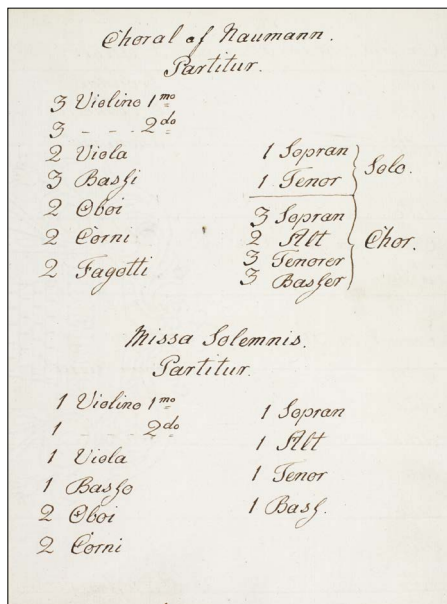 Choral of Naumann.
Partitur.
3 Violino 1mo
3 - - - - 2do
2 Viola
3 Bassi
2 Oboi
2 Corni
2 Fagotti
1 Sopran
1 Tenor
Solo.
3 Sopran
2 Alt
3 Tenorer
3 Basser
Chor.
Missa Solemnis.
Partitur.
1 Violino 1mo
1 - - - - 2do
1 Viola
1 Basso
2 Oboi
2 Corni
1 Sopran
1 Alt
1 Tenor
1 Bass.